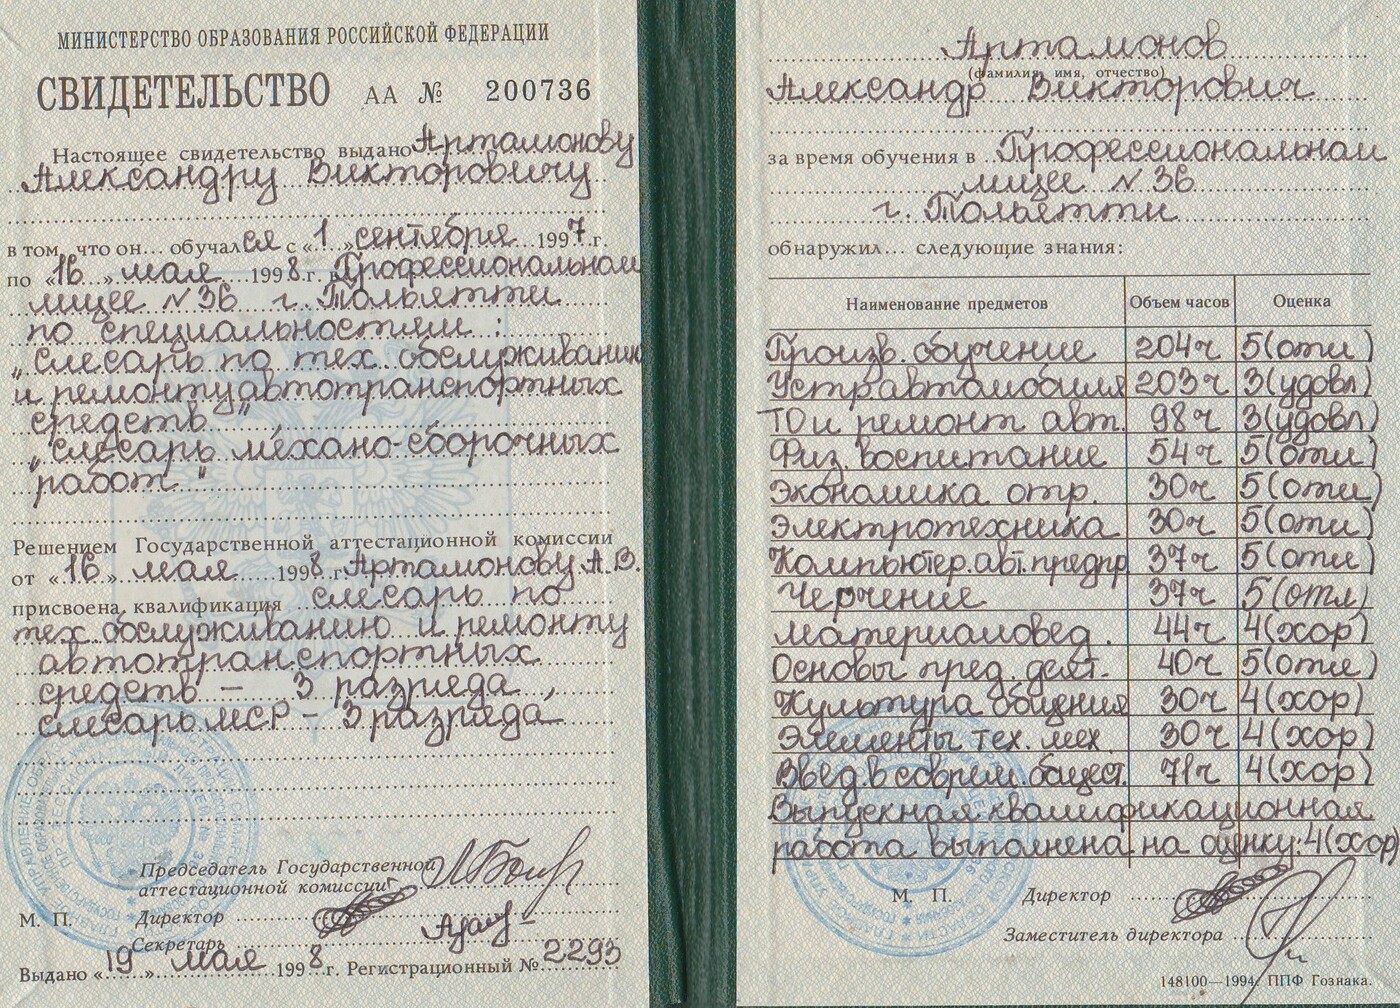 МИНИСТЕРСТВО ОБРАЗОВАНИЯ РОССИЙСКОЙ ФЕДЕРАЦИИ
СВИДЕТЕЛЬСТВО АА № 200736
Настоящее свидетельство выдано Артамонову
Александру Викторовичу
в том, что он... обучался с «1» сентября 1997 г.
по «16» мая 1998 г. в Профессиональном
лицее №36 г. Тольятти
по специальностям:
„слесарь по тех. обслуживанию
и ремонту автотранспортных
средств",
„слесарь механо-сборочных
работ"
Решением Государственной аттестационной комиссии
от «16» мая 1998 г. Артамонову А.В.
присвоена квалификация слесарь по
тех. обслуживанию и ремонту
автотранспортных
средств – 3 разряда,
слесарь МСР – 3 разряда
Председатель Государственной
аттестационной комиссии
М. П. Директор
Секретарь
Выдано «19» мая 1998 г. Регистрационный № 2293
Артамонов
(фамилия, имя, отчество)
Александр Викторович
за время обучения в Профессиональном
лицее №36
г. Тольятти
обнаружил... следующие знания:
Наименование предметов Объем часов Оценка
Произв. обучение 204ч 5(отл)
Устр. автомобиля 203ч 3(удовл)
ТО и ремонт авт. 98ч 3(удовл)
Физ. воспитание 54ч 5(отл)
Экономика отр. 30ч 5(отл)
Электротехника 30ч 5(отл)
Компьютер. авт. предпр 37ч 5(отл)
Черчение 37ч 5(отл)
Материаловед. 44ч 4(хор)
Основы пред. деят. 40ч 5(отл)
Культура общения 30ч 4(хор)
Элементы тех. мех. 30ч 4(хор)
Введ. в соврем. общест. 71ч 4(хор)
Выпускная квалификационная
работа выполнена на оценку: 4(хор)
М. П. Директор
Заместитель директора
148100—1994. ППФ Гознака.